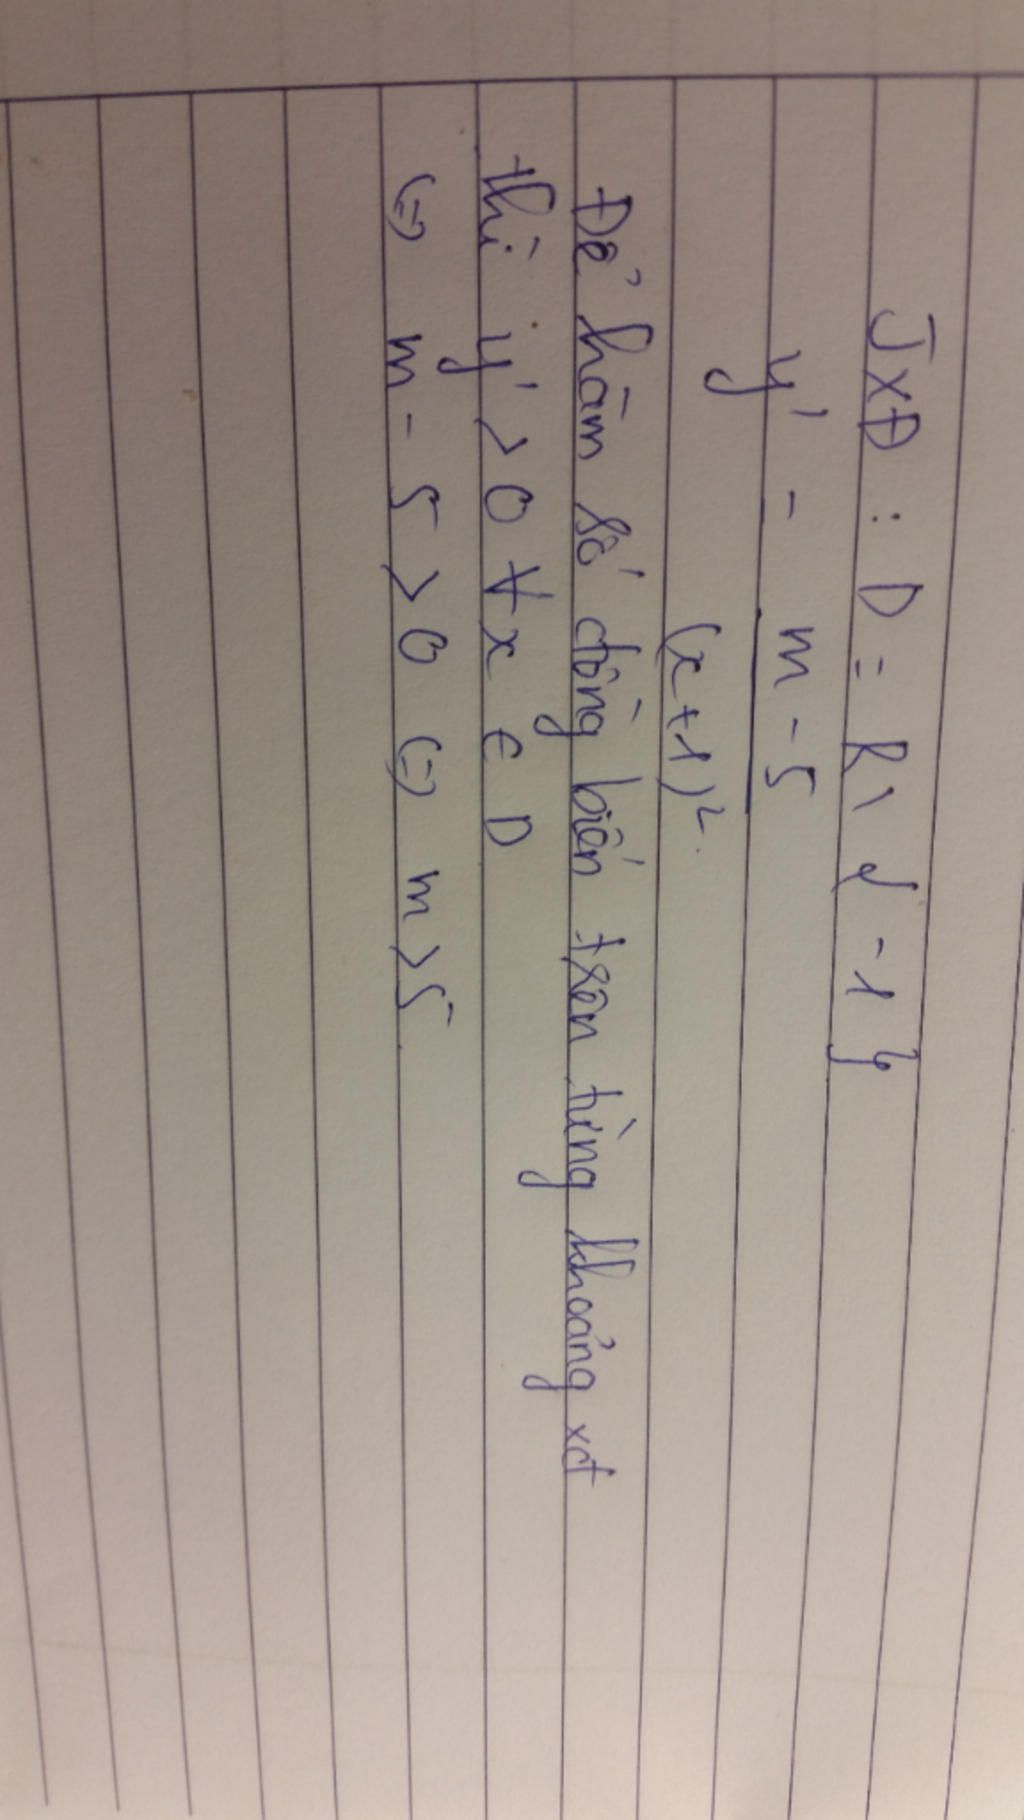 TXĐ : D = R \ { -1 }
y' = m - 5
(x+1)².
Để hàm số đồng biến trên từng khoảng xđ
thì y' > 0 ∀x ∈ D
(=) m - 5 > 0 (=) m > 5